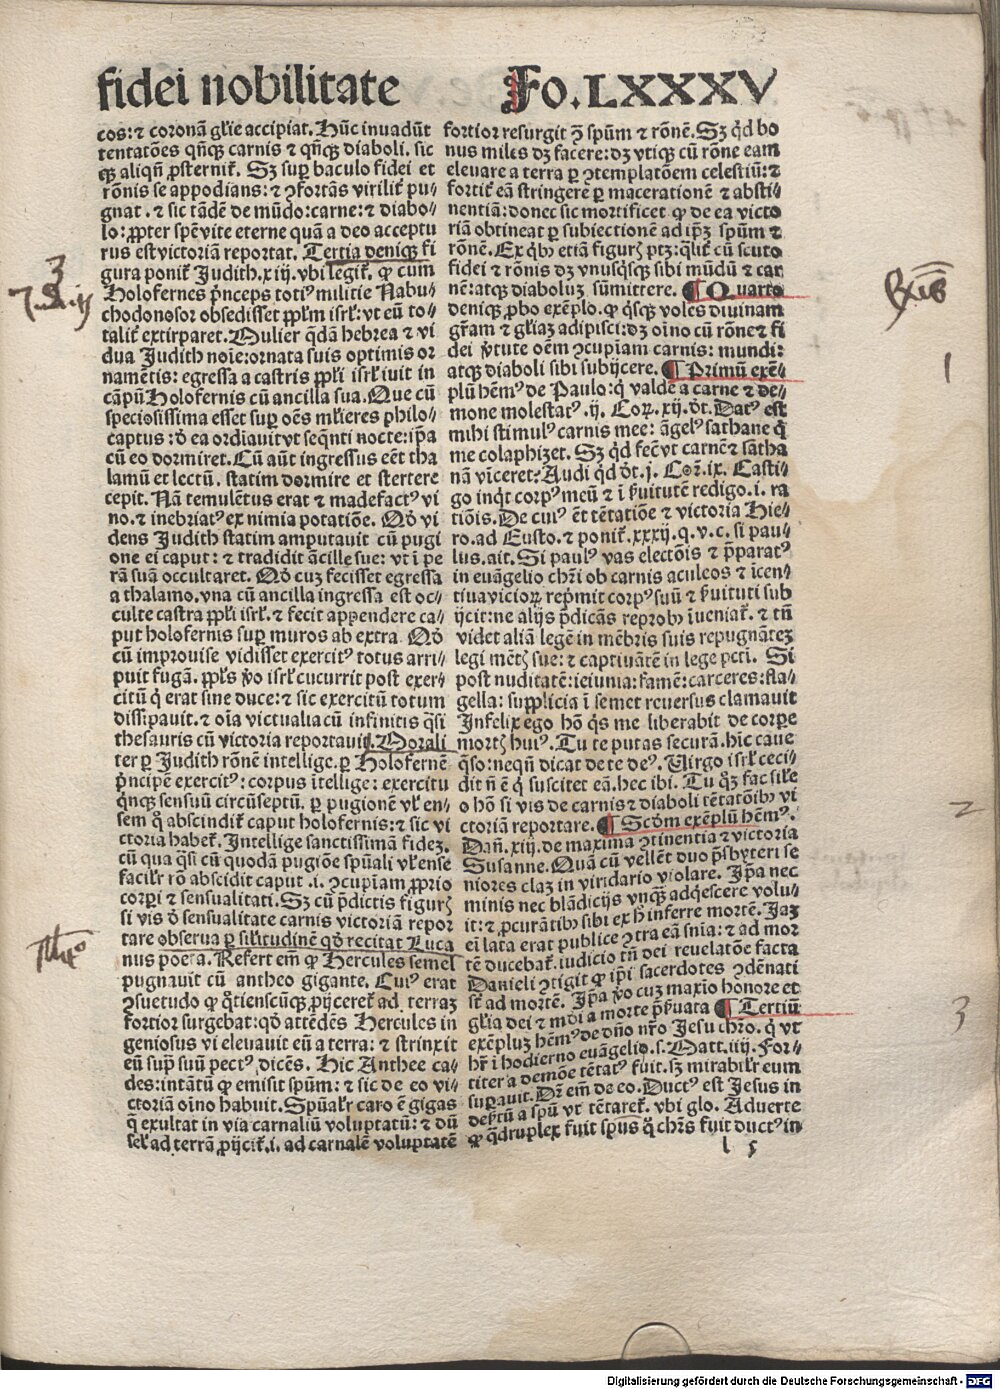 fidei nobilitate
Fo. LXXXV
cos: ⁊ coronā gl'ie accipiat. Hūc inuadūt
tentatōes qñqꝫ carnis ⁊ qñqꝫ diaboli. sic
qꝫ aliqñ ꝓsternit̃. Sꝫ suꝑ baculo fidei et
rōnis se appodians: ⁊ ꝯfortās virilit̃ pu⸗
gnat. ⁊ sic tādē de mūdo: carne: ⁊ diabo⸗
lo: ꝓpter spēvite eterne quā a deo acceptu
rus est victoriā reportat. Tertia deniqꝫ fi
gura ponit̃ Judith. xiij. vbi legit̃. ꝙ cum
Holofernes p̃nceps toti⁹ militie Nabu⸗
chodonosor obsedisset ppl'm isrl': vt eū to⸗
talit̃ extirparet. Mulier q̄dā hebrea ⁊ vi
dua Judith noīe: ornata suis optimis or
namētis: egressa a castris ppl'i isrl' iuit in
cāpū Holofernis cū ancilla sua. Que cū
speciosissima esset suꝑ oēs ml'ieres philo⸗
captus: ꝺ ea ordiauit vt seq̄nti nocte: ip̄a
cū eo dormiret. Cū aūt ingressus eēt tha
lamū et lectū. statim dormire et stertere
cepit. Nā temulētus erat ⁊ madefact⁹ vi
no. ⁊ inebriat⁹ ex nimia potatiōe. Qꝺ vi
dens Judith statim amputauit cū pugi
one ei caput: ⁊ tradidit ācille sue: vt ī pe
rā suā occultaret. Qꝺ cuꝫ fecisset egressa
a thalamo. vna cū ancilla ingressa est oc⸗
culte castra ppl'i isrl'. ⁊ fecit appendere ca⸗
put holofernis suꝑ muros ab extra. Qꝺ
cū improuise vidisset exercit⁹ totus arri⸗
puit fugā. ppl's ꝟo isrl' cucurrit post exer⸗
citū q̇ erat sine duce: ⁊ sic exercitū totum
dissipauit. ⁊ oīa victualia cū infinitis q̇si
thesauris cū victoria reportauit. Morali
ter ꝑ Judith rōnē intellige. ꝑ Holofernē
p̃ncipē exercit⁹: corpus ītellige: exercitu
q̇nqꝫ sensuū circūseptū. ꝑ pugionē vl' en⸗
sem q̇ abscindit̃ caput holofernis: ⁊ sic vi
ctoria habet̃. Intellige sanctissimā fideꝫ.
cū qua q̇si cū quodā pugiōe spūali vl' ense
facilr̃ rō abscidit caput .i. ꝯcupīam ꝓprio
corpi ⁊ sensualitati. Sꝫ cū p̄dictis figurꝭ
si vis ꝺ sensualitate carnis victoriā repor
tare obserua ꝑ sil'itudinē qꝺ recitat Luca
nus poeta. Refert em̄ ꝙ Hercules semel
pugnauit cū antheo gigante. Cui⁹ erat
ꝯsuetudo ꝙ q̇tienscūqꝫ ꝓijceret̃ ad terraꝫ
fortior surgebat: qꝺ attēdēs Hercules in
geniosus vi eleuauit eū a terra: ⁊ strinxit
eū sup̄ suū pect⁹ dicēs. Hic Anthee ca⸗
des: intātū ꝙ emisit spūm: ⁊ sic de eo vi⸗
ctoriā oīno habuit. Spūalr̃ caro ē gigas
q̄ exultat in via carnaliū voluptatū: ⁊ dū
sel' ad terrā ꝓijcit̃ .i. ad carnalē voluptatē
fortior resurgit ꝯ̄ spūm ⁊ rōnē. Sꝫ q̇d bo
nus miles dꝫ facere: dꝫ vtiqꝫ cū rōne eam
eleuare a terra ꝑ ꝯtemplatōem celestiū: ⁊
fortit̃ eā stringere ꝑ macerationē ⁊ absti⸗
nentiā: donec sic mortificet ꝙ de ea victo
riā obtineat ꝑ subiectionē ad ip̄ꝫ spūm ⁊
rōnē. Ex q̇bꝰ etiā figurꝭ ptꝫ: q̄lit̃ cū scuto
fidei ⁊ rōnis dꝫ vnusq̇sqꝫ sibi mūdū ⁊ car
nē: atqꝫ diaboluꝫ sūmittere. ¶ Quarto
deniqꝫ ꝓbo exēplo. ꝙ q̇sqꝫ voles diuinam
gr̄am ⁊ gl'iaꝫ adipisci: dꝫ oīno cū rōne ⁊ fi
dei ꝟtute oēm ꝯcupīam carnis: mundi:
atqꝫ diaboli sibi subijcere. ¶ Primū exē⸗
plū hēm⁹ de Paulo: q̇ valde a carne ⁊ de⸗
mone molestat⁹. ij. Coꝝ. xij. ꝺt. Dat⁹ est
mihi stimul⁹ carnis mee: āgel⁹ sathane q̇
me colaphizet. Sꝫ q̇d fec̄ vt carnē ⁊ satha
nā viceret: Audi q̇d ꝺt. j. Coꝝ. ix. Casti⸗
go inq̇t corp⁹ meū ⁊ ī ẜuitutē redigo. i. ra
tiōis. De cui⁹ ēt tētatiōe ⁊ victoria Hie⸗
ro. ad Eusto. ⁊ ponit̃. xxxij. q. v. c. si pau⸗
lus. ait. Si paul⁹ vas electōis ⁊ p̄parat⁹
in euāgelio chr̄i ob carnis aculeos ⁊ īcen⸗
tiua vicioꝝ rep̄mit corp⁹ suū ⁊ ẜuituti sub
ijcit: ne alijs p̄dicās reprobꝰ īueniat̃. ⁊ tn̄
videt aliā legē in mēbris suis repugnāteꝫ
legi mētꝭ sue: ⁊ captiuātē in lege pcti. Si
post nuditatē: ieiunia: famē: carceres: fla⸗
gella: supplicia ī semet reuersus clamauit
Infelix ego hō q̇s me liberabit de corꝑe
mortꝭ hui⁹. Tu te putas securā. hic caue
q̄so: neqñ dicat de te de⁹. Virgo isrl' ceci⸗
dit ñ ē q̇ suscitet eā. hec ibi. Tu q̇ꝫ fac sil'e
o hō si vis de carnis ⁊ diaboli tētatōibꝰ vi
ctoriam reportare. ¶ Scꝺm exēplū hēm⁹.
Dañ. xiij. de maxima ꝯtinentia ⁊ victoria
Susanne. Quā cū vellēt duo p̄sbyteri se
niores claꝫ in viridario violare. Ip̄a nec
minis nec blādicijs vnqꝫ adq̇escere volu⸗
it: ⁊ ꝓcurātibꝰ sibi ex ħ inferre mortē. Jaꝫ
ei lata erat publice ꝯtra eā snīa: ⁊ ad mor
tē ducebat̃. iudicio tn̄ dei reuelatōe facta
Danieli ꝯtigit ꝙ ip̄i sacerdotes ꝯdēnati
st̄ ad mortē. Ip̄a ꝟo cuꝫ maxīo honore et
gl'ia dei ⁊ mūdi a morte p̄ẜuata ¶ Tertiū
exēpluꝫ hēm⁹ de dn̄o nr̄o Jesu chr̄o. q̇ vt
hr̄ ī hodierno euāgelio. s. Matt. iiij. For⸗
titer a demōe tētat⁹ fuit. sꝫ mirabilr̃ eum
suꝑauit. Dr̄ em̄ de eo. Duct⁹ est Jesus in
deẜtū a spū vt tētaret̃. vbi glo. Aduerte
ꝙ q̄druplex fuit spūs q̇ chr̄s fuit duct⁹ in
l 5
3
1
2
3